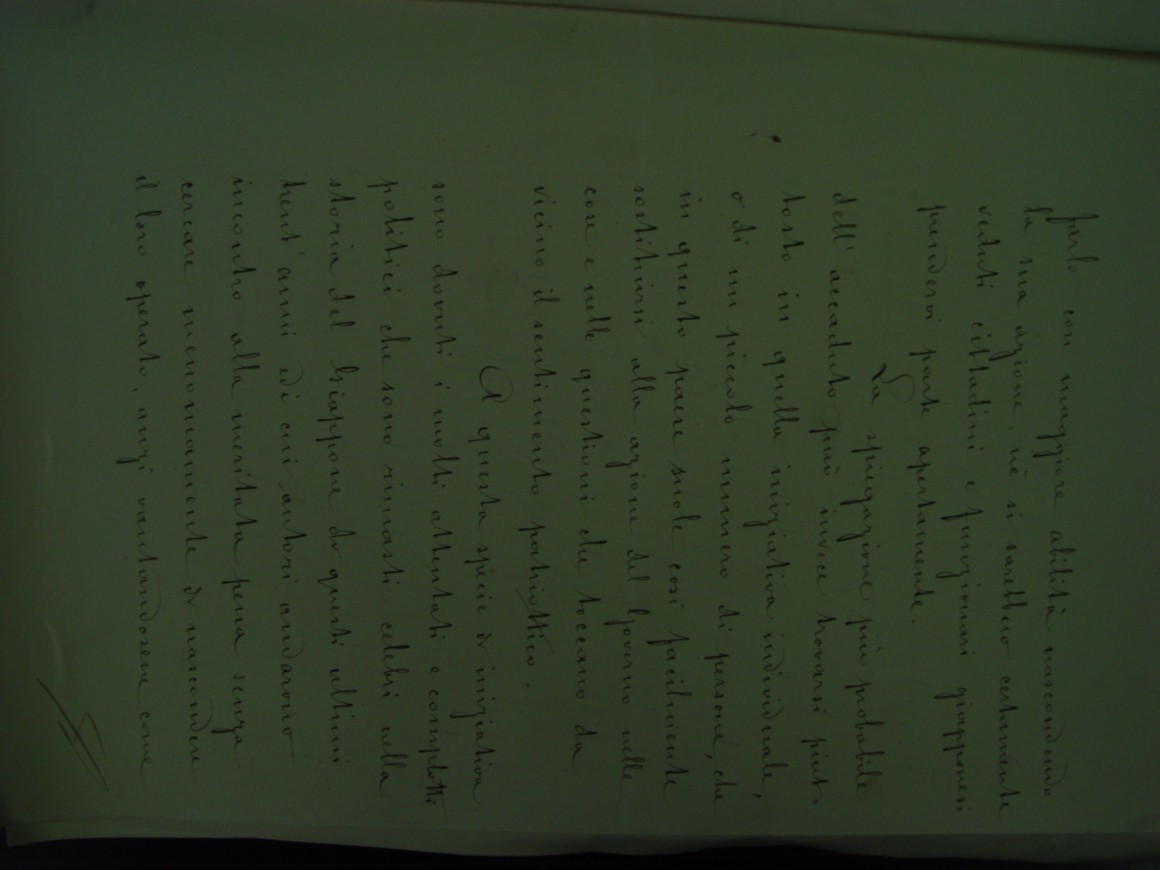 farlo con maggiore abilità nascondendo
la sua azione, nè si sarebbero certamente
veduti cittadini e funzionari giapponesi
prendervi parte apertamente.
La spiegazione più probabile
dell'accaduto può invece trovarsi piut-
tosto in quella iniziativa individuale,
o di un piccolo numero di persone, che
in questo paese suole così facilmente
sostituirsi alla azione del Governo nelle
cose e nelle questioni che toccano da
vicino il sentimento patriottico.
A questa specie di iniziativa
sono dovuti i molti attentati e complotti
politici che sono rimasti celebri nella
storia del Giappone di questi ultimi
trent'anni ed i cui autori andarono
incontro alla meritata pena senza
cercare menomamente di nascondere
il loro operato, anzi vantandosene come